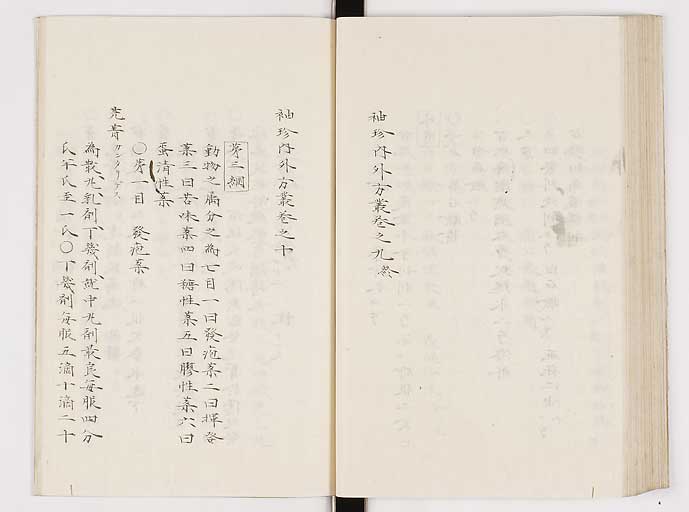 袖珍内外方叢巻之九終
袖珍内外方叢巻之十
第三綱
動物之属分之為七目一曰發疱薬二曰揮發
薬三曰苦味薬四曰糖性薬五曰膠性薬六曰
蛋清性薬
〇第一目 發疱薬
芫菁カンタリデス
為散丸乳剤丁幾剤就中丸剤最良毎服四分
氏半氏至一氏〇丁幾剤毎服五滴十滴二十